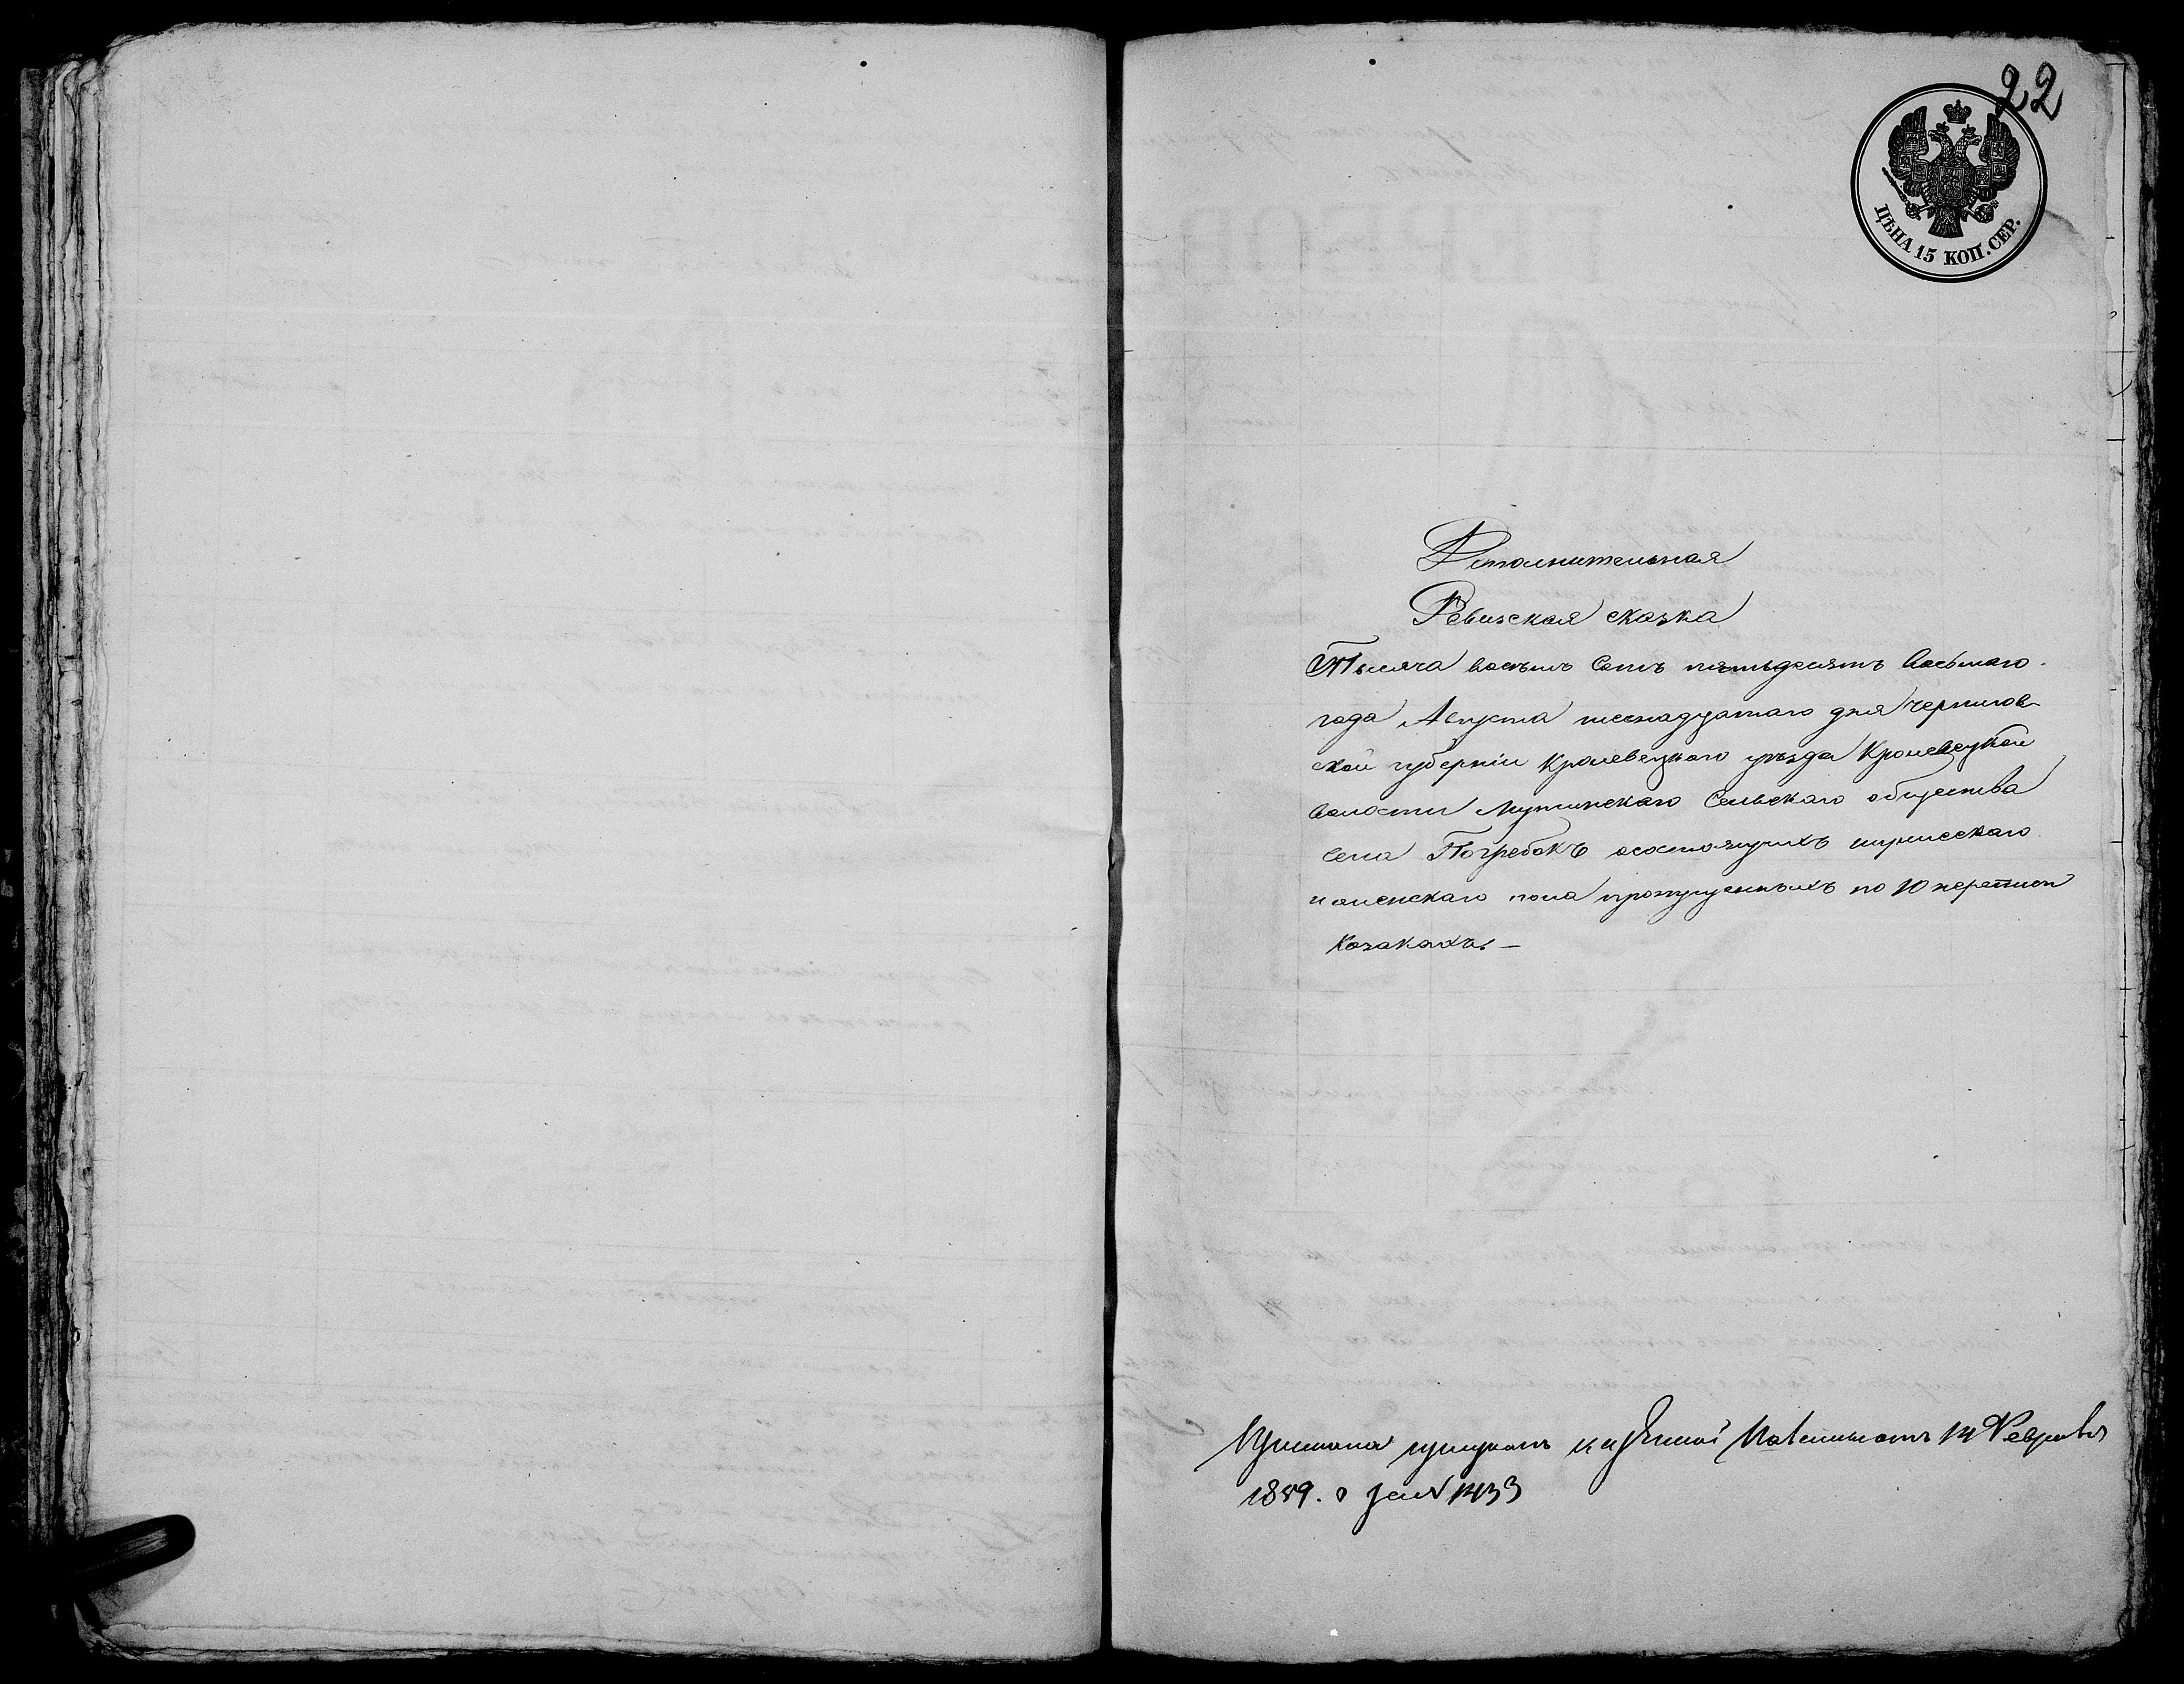 22
ЦѢНА 15 КОП. СЕР.
Дополнительная
Ревизская сказка
Тысяча восемь сотъ пятьдесятъ восьмаго
года Августа шеснадцатаго дня Чернигов-
ской губерніи Кролевецкаго уѣзда Кролевецкой
волости Мутинскаго Сельскаго общества
села Погребокъ о состоящихъ мужескаго
и женскаго пола пропущенныхъ по 10 переписи
козакахъ. —
Февраля
1859.